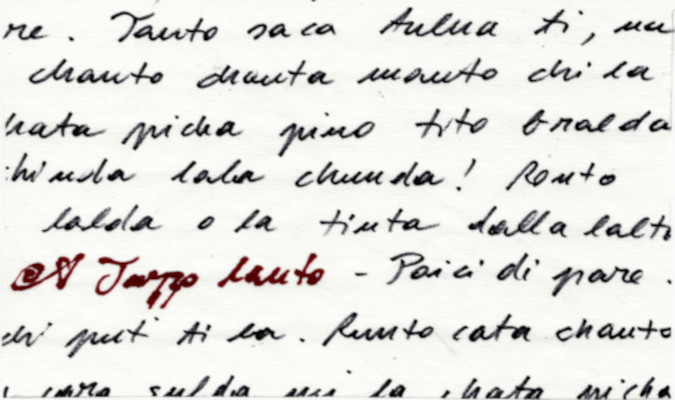 re. Tanto saca Aulua ti, un
chanto chanta manto chi la
hata picha pino tito bralda
hinda lala chunda! Ronto
lalda o la tinta dalla lalto
lanto - Paici di pare.
chi put ti la. Runto cata chanto
sulda mi la chata picha